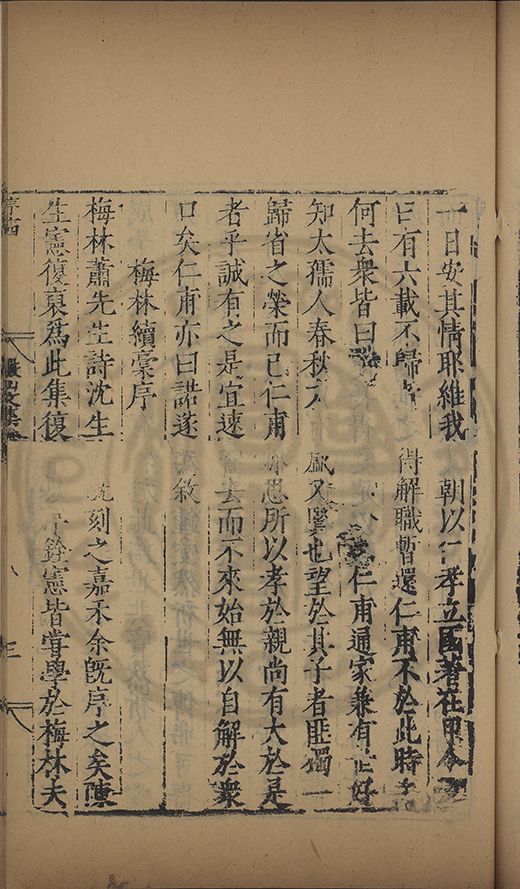 一日安其情耶維我朝以仁孝立國著在甲令
曰有六載不歸省得解職暫還仁甫不於此時
何去衆皆曰仁甫通家兼有好
知太孺人春秋又異也望於其子者匪獨一
歸省之榮而已仁甫思所以孝於親尚有大於是
者乎誠有之是宜速去而不來始無以自解於衆
口矣仁甫亦曰諾遂敘
梅林續稾序
梅林蕭先生詩沈生刻之嘉禾余旣序之矣陳
生憲復裒爲此集復銓憲皆嘗學於梅林夫